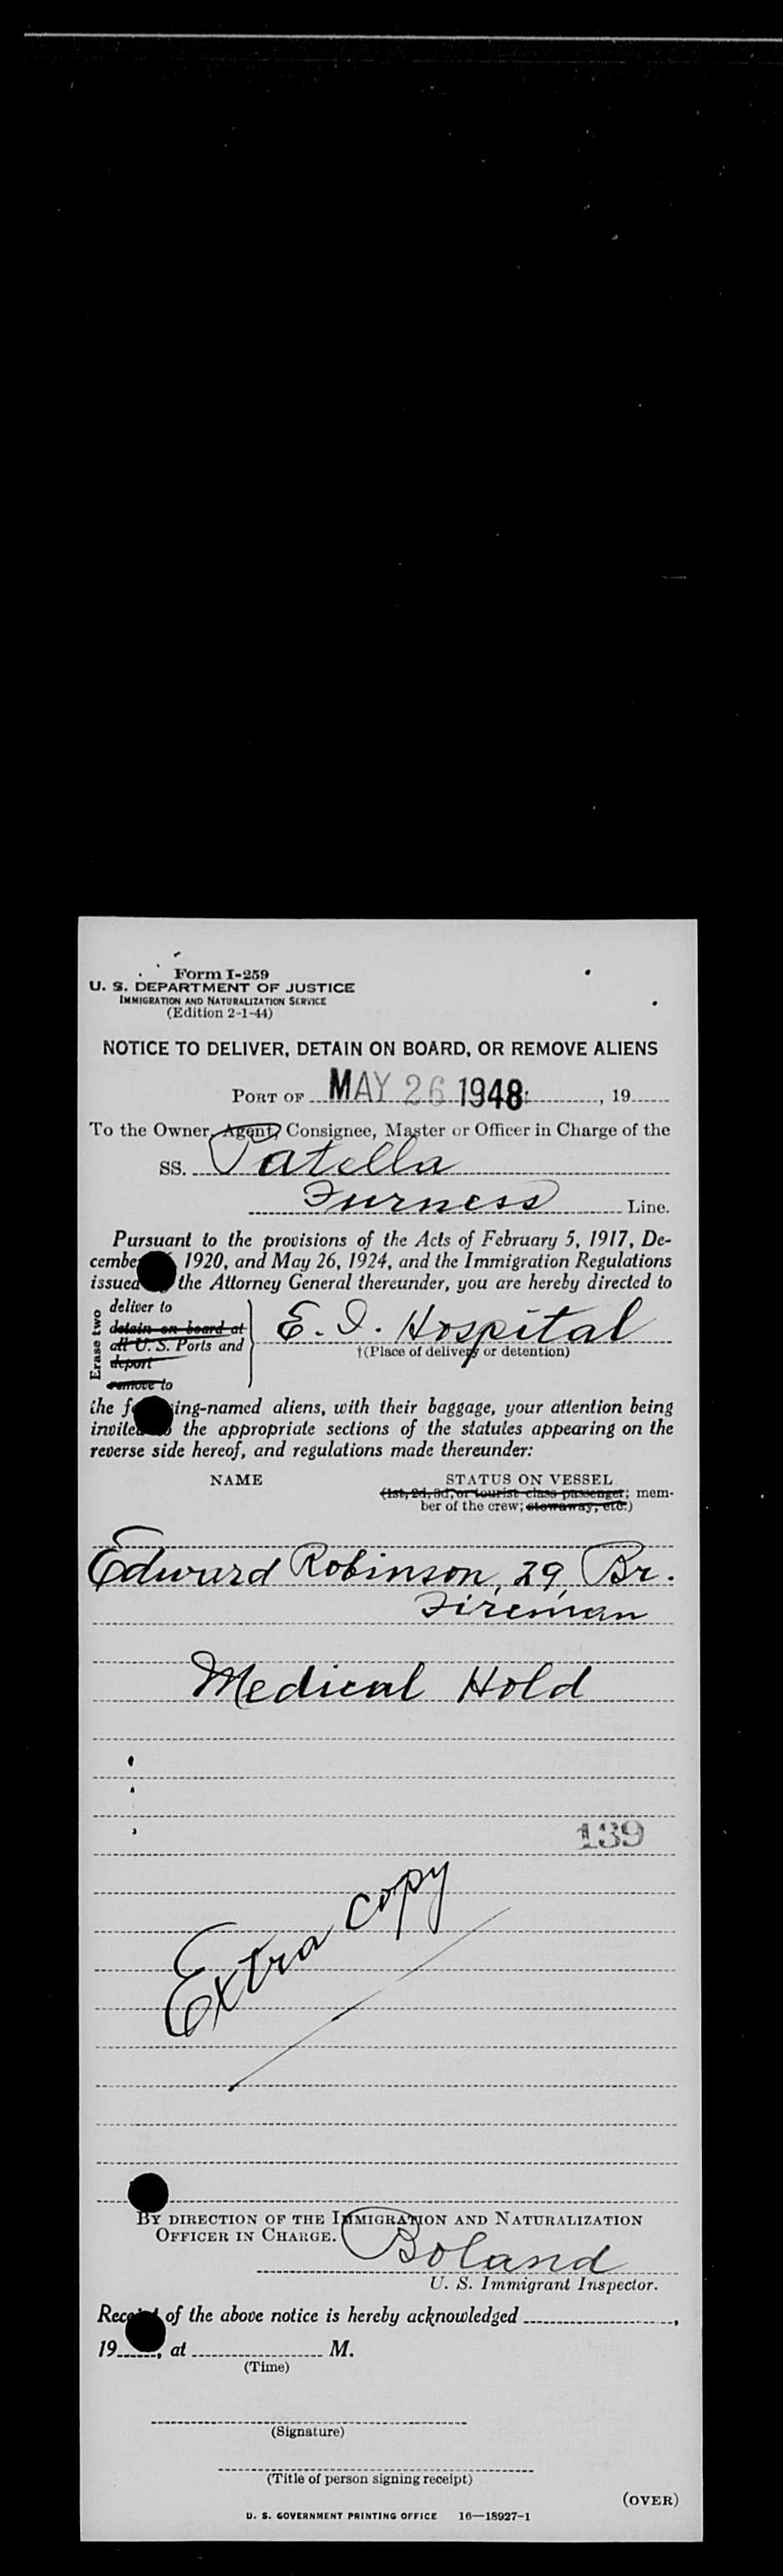 Form I-259
U. S. DEPARTMENT OF JUSTICE
IMMIGRATION AND NATURALIZATION SERVICE
(Edition 2-1-44)
NOTICE TO DELIVER, DETAIN ON BOARD, OR REMOVE ALIENS
PORT OF MAY 26 1948, 19
To the Owner, Agent, Consignee, Master or Officer in Charge of the
SS. Patella
Furness Line.
Pursuant to the provisions of the Acts of February 5, 1917, De-
cembe 1920, and May 26, 1924, and the Immigration Regulations
issued the Attorney General thereunder, you are hereby directed to
Erase two
deliver to
detain on board at
all U. S. Ports and
deport
remove to
E. I. Hospital
†(Place of delivery or detention)
the f ing-named aliens, with their baggage, your attention being
invited the appropriate sections of the statutes appearing on the
reverse side hereof, and regulations made thereunder:
NAME STATUS ON VESSEL
(1st, 2d, 3d, or tourist class passenger; mem-
ber of the crew; stowaway, etc.)
Edward Robinson, 29, Br.
Fireman
Medical Hold
139
Extra copy
BY DIRECTION OF THE IMMIGRATION AND NATURALIZATION
OFFICER IN CHARGE.
Boland
U. S. Immigrant Inspector.
Rece t of the above notice is hereby acknowledged ,
19 , at M.
(Time)
(Signature)
(Title of person signing receipt)
(OVER)
U. S. GOVERNMENT PRINTING OFFICE 16—18927-1